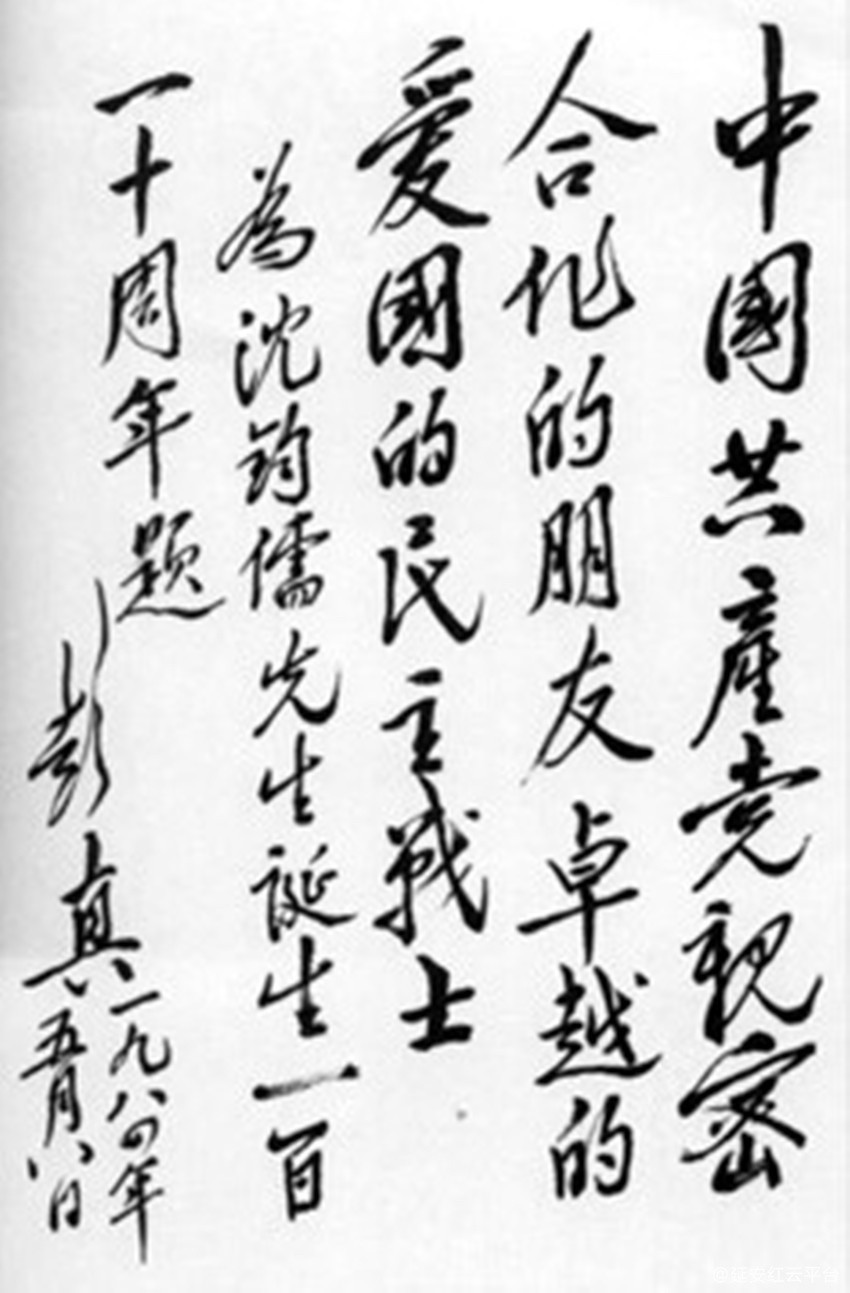 中國共產党親密
合作的朋友卓越的
爱國的民主戰士
為沈鈞儒先生誕生一百
一十周年题
彭真
一九八四年
五月八日